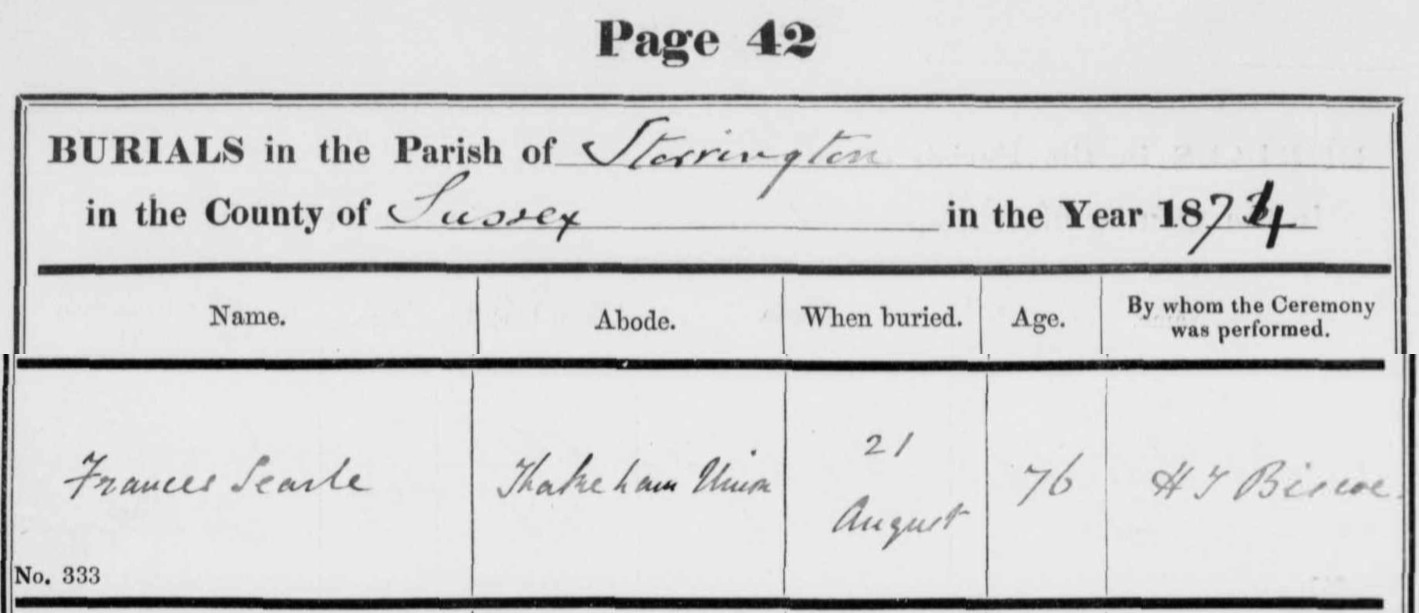 Page 42
BURIALS in the Parish of Storrington
in the County of Sussex in the Year 1874
Name. Abode. When buried. Age. By whom the Ceremony was performed.
Frances Searle Thakeham Union 21 August 76 H J Biscoe
No. 333